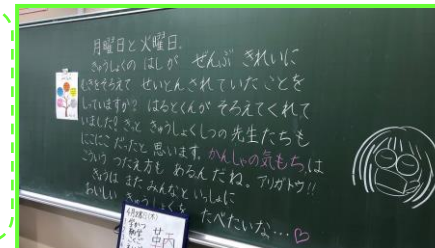 月曜日と火曜日.
きゅうしょくの はしが ぜんぶ きれいに
むきをそろえて せいとんされていたことを
しっていますか? はるとくんが そろえてくれて
いました! きっと きゅうしょくしつの先生たちも
にこにこ だったと思います。かんしゃの気もちは
こういう つたえ方も あるんだね。アリガトウ!!
きょうは また みんなと いっしょに
おいしい きゅうしょくを たべたいな…♡